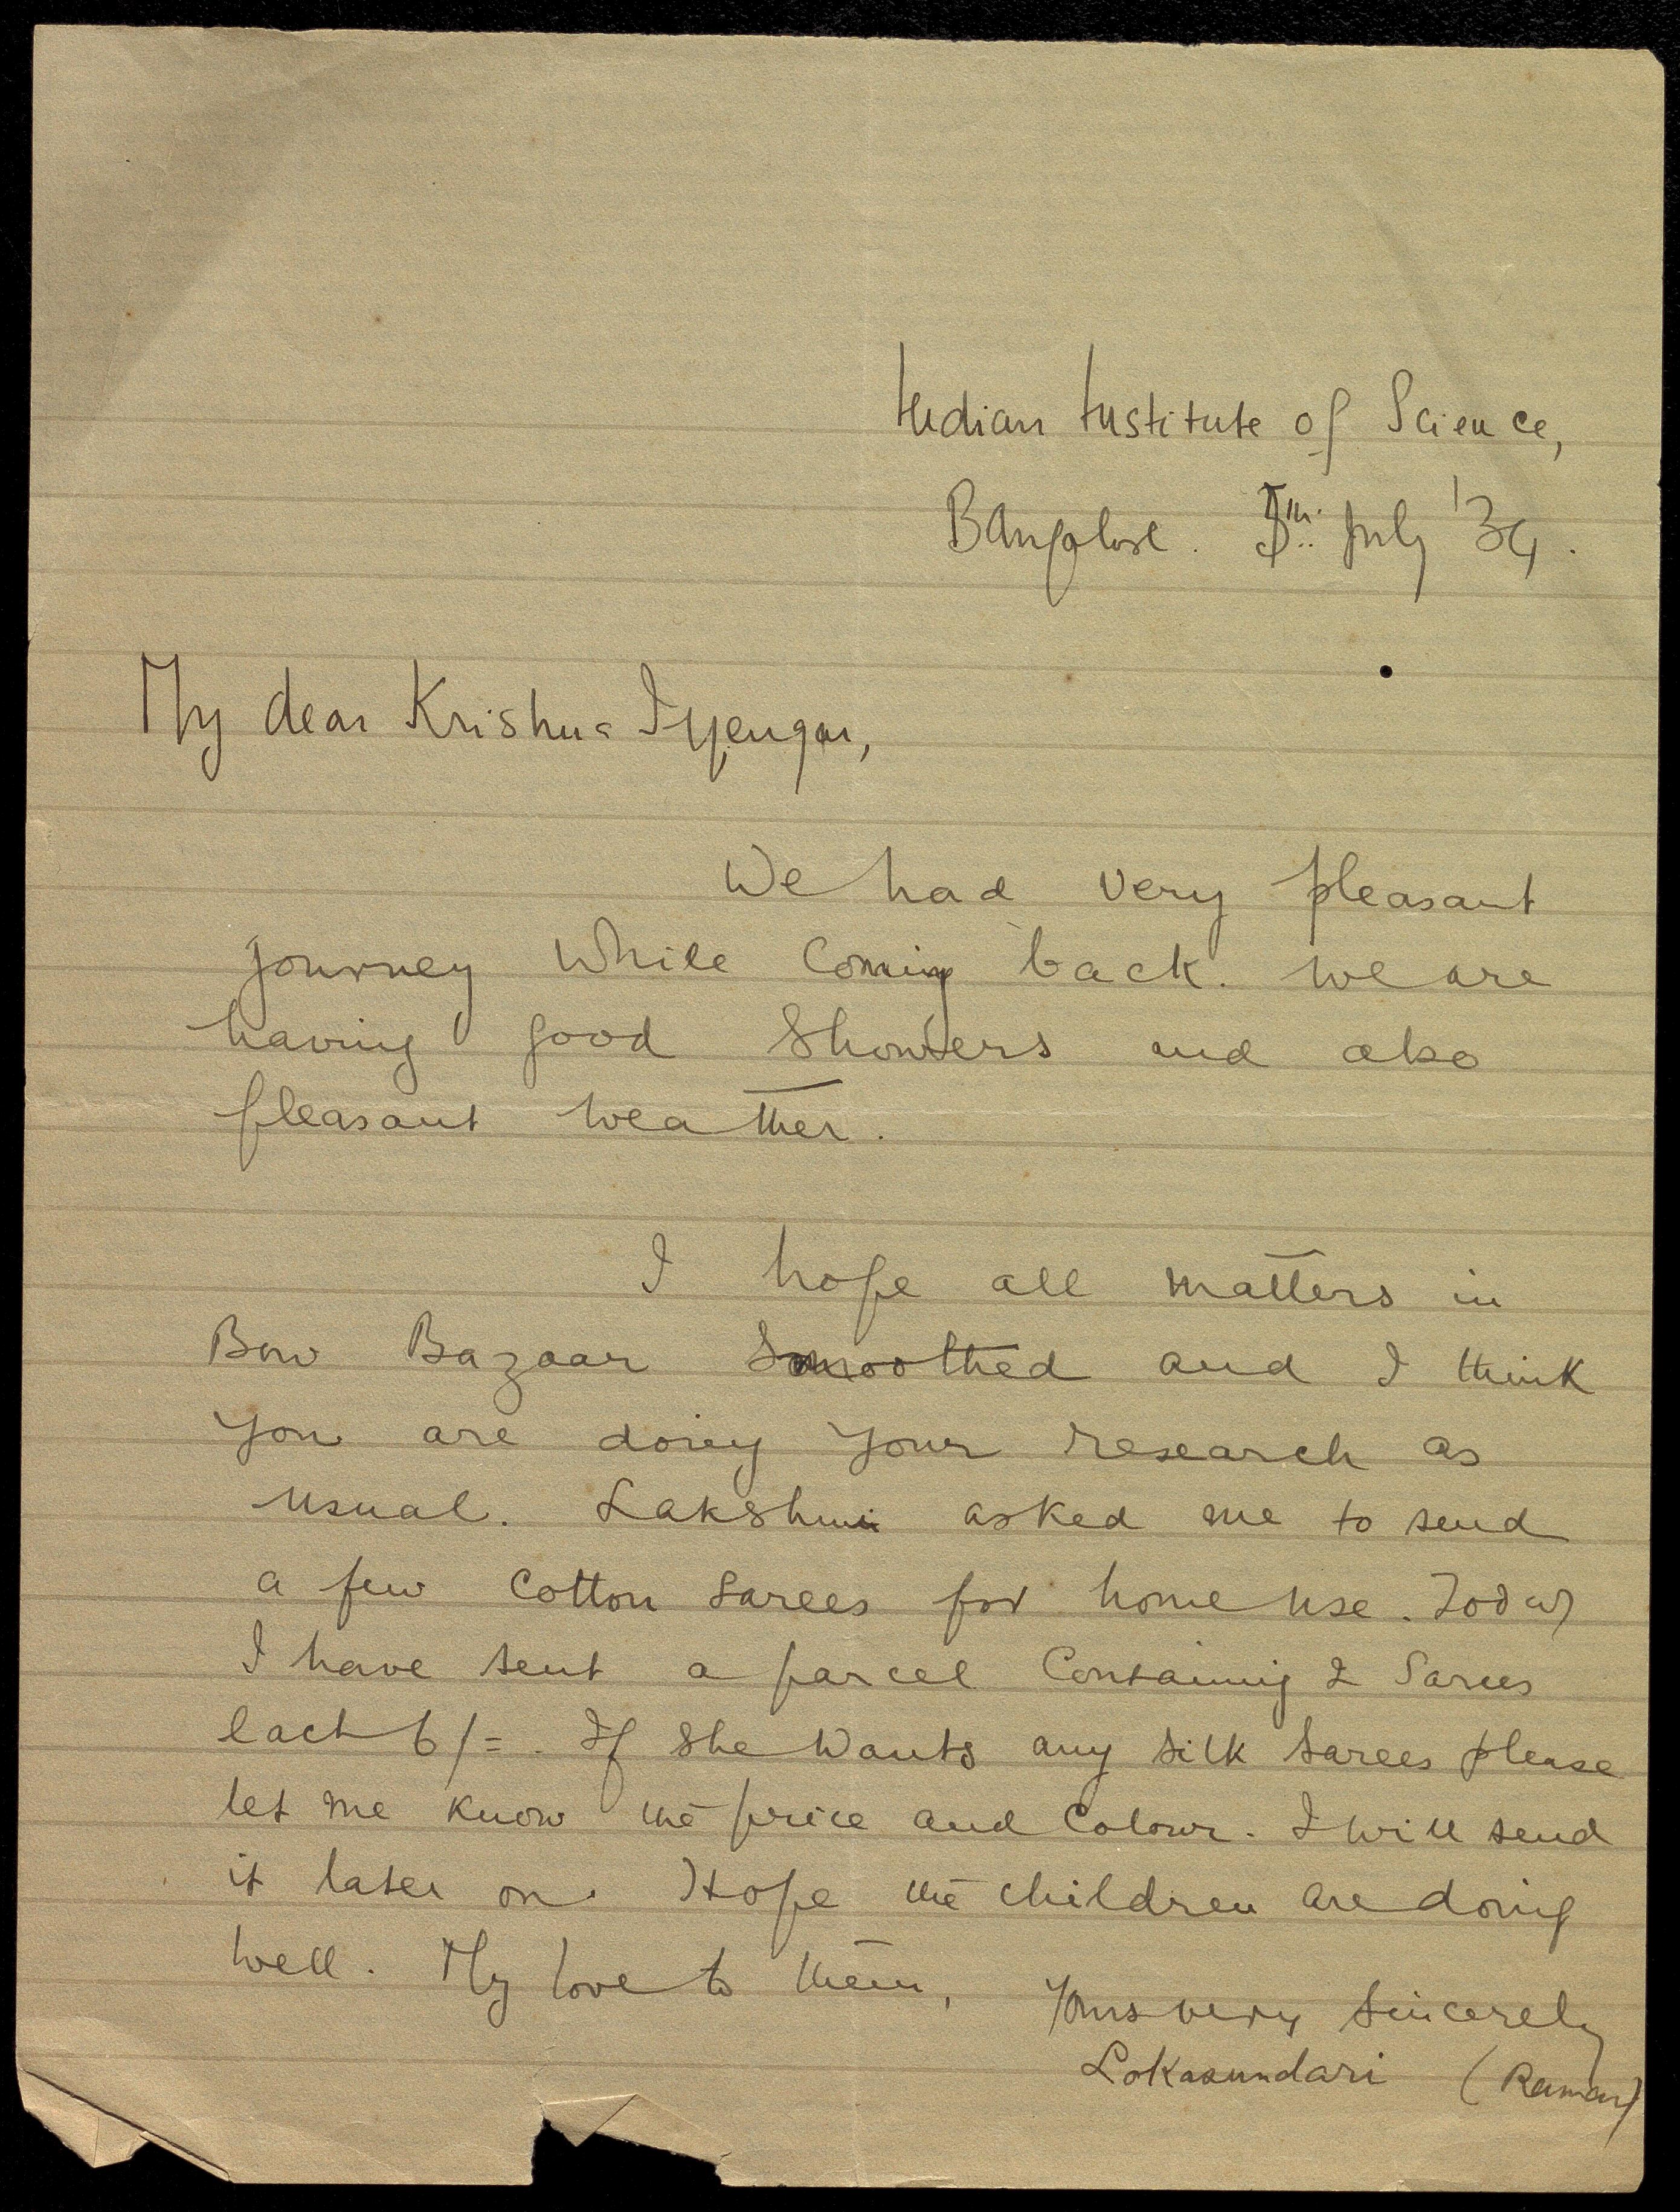 Indian Institute of Science,
Bangalore. 5th July '34.
My dear Krishna Iyengar,
We had very pleasant
journey while coming back. We are
having good showers and also
pleasant weather.
I hope all matters in
Bow Bazaar Smoothed and I think
you are doing your research as
usual. Lakshmi asked me to send
a few cotton sarees for home use. Today
I have sent a parcel containing 2 Sarees
each 6/=. If she wants any silk sarees please
let me know the price and colour. I will send
it later on. Hope the children are doing
well. My love to them,
Yours very sincerely
Lokasundari (Raman)